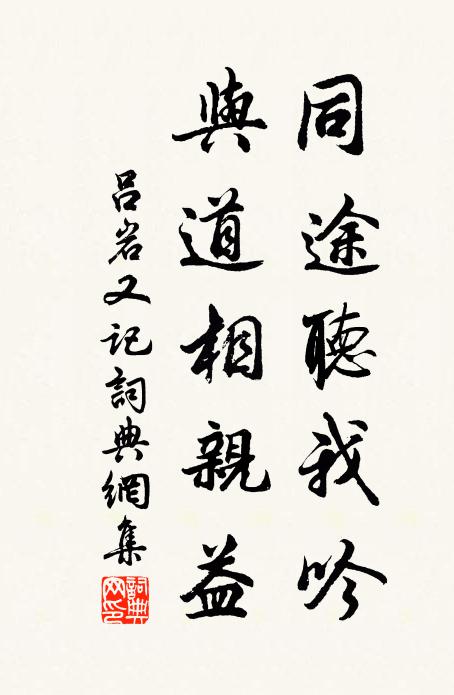 同途聽我吟
與道相親益
吕岩又記詞典網集
詞典网印